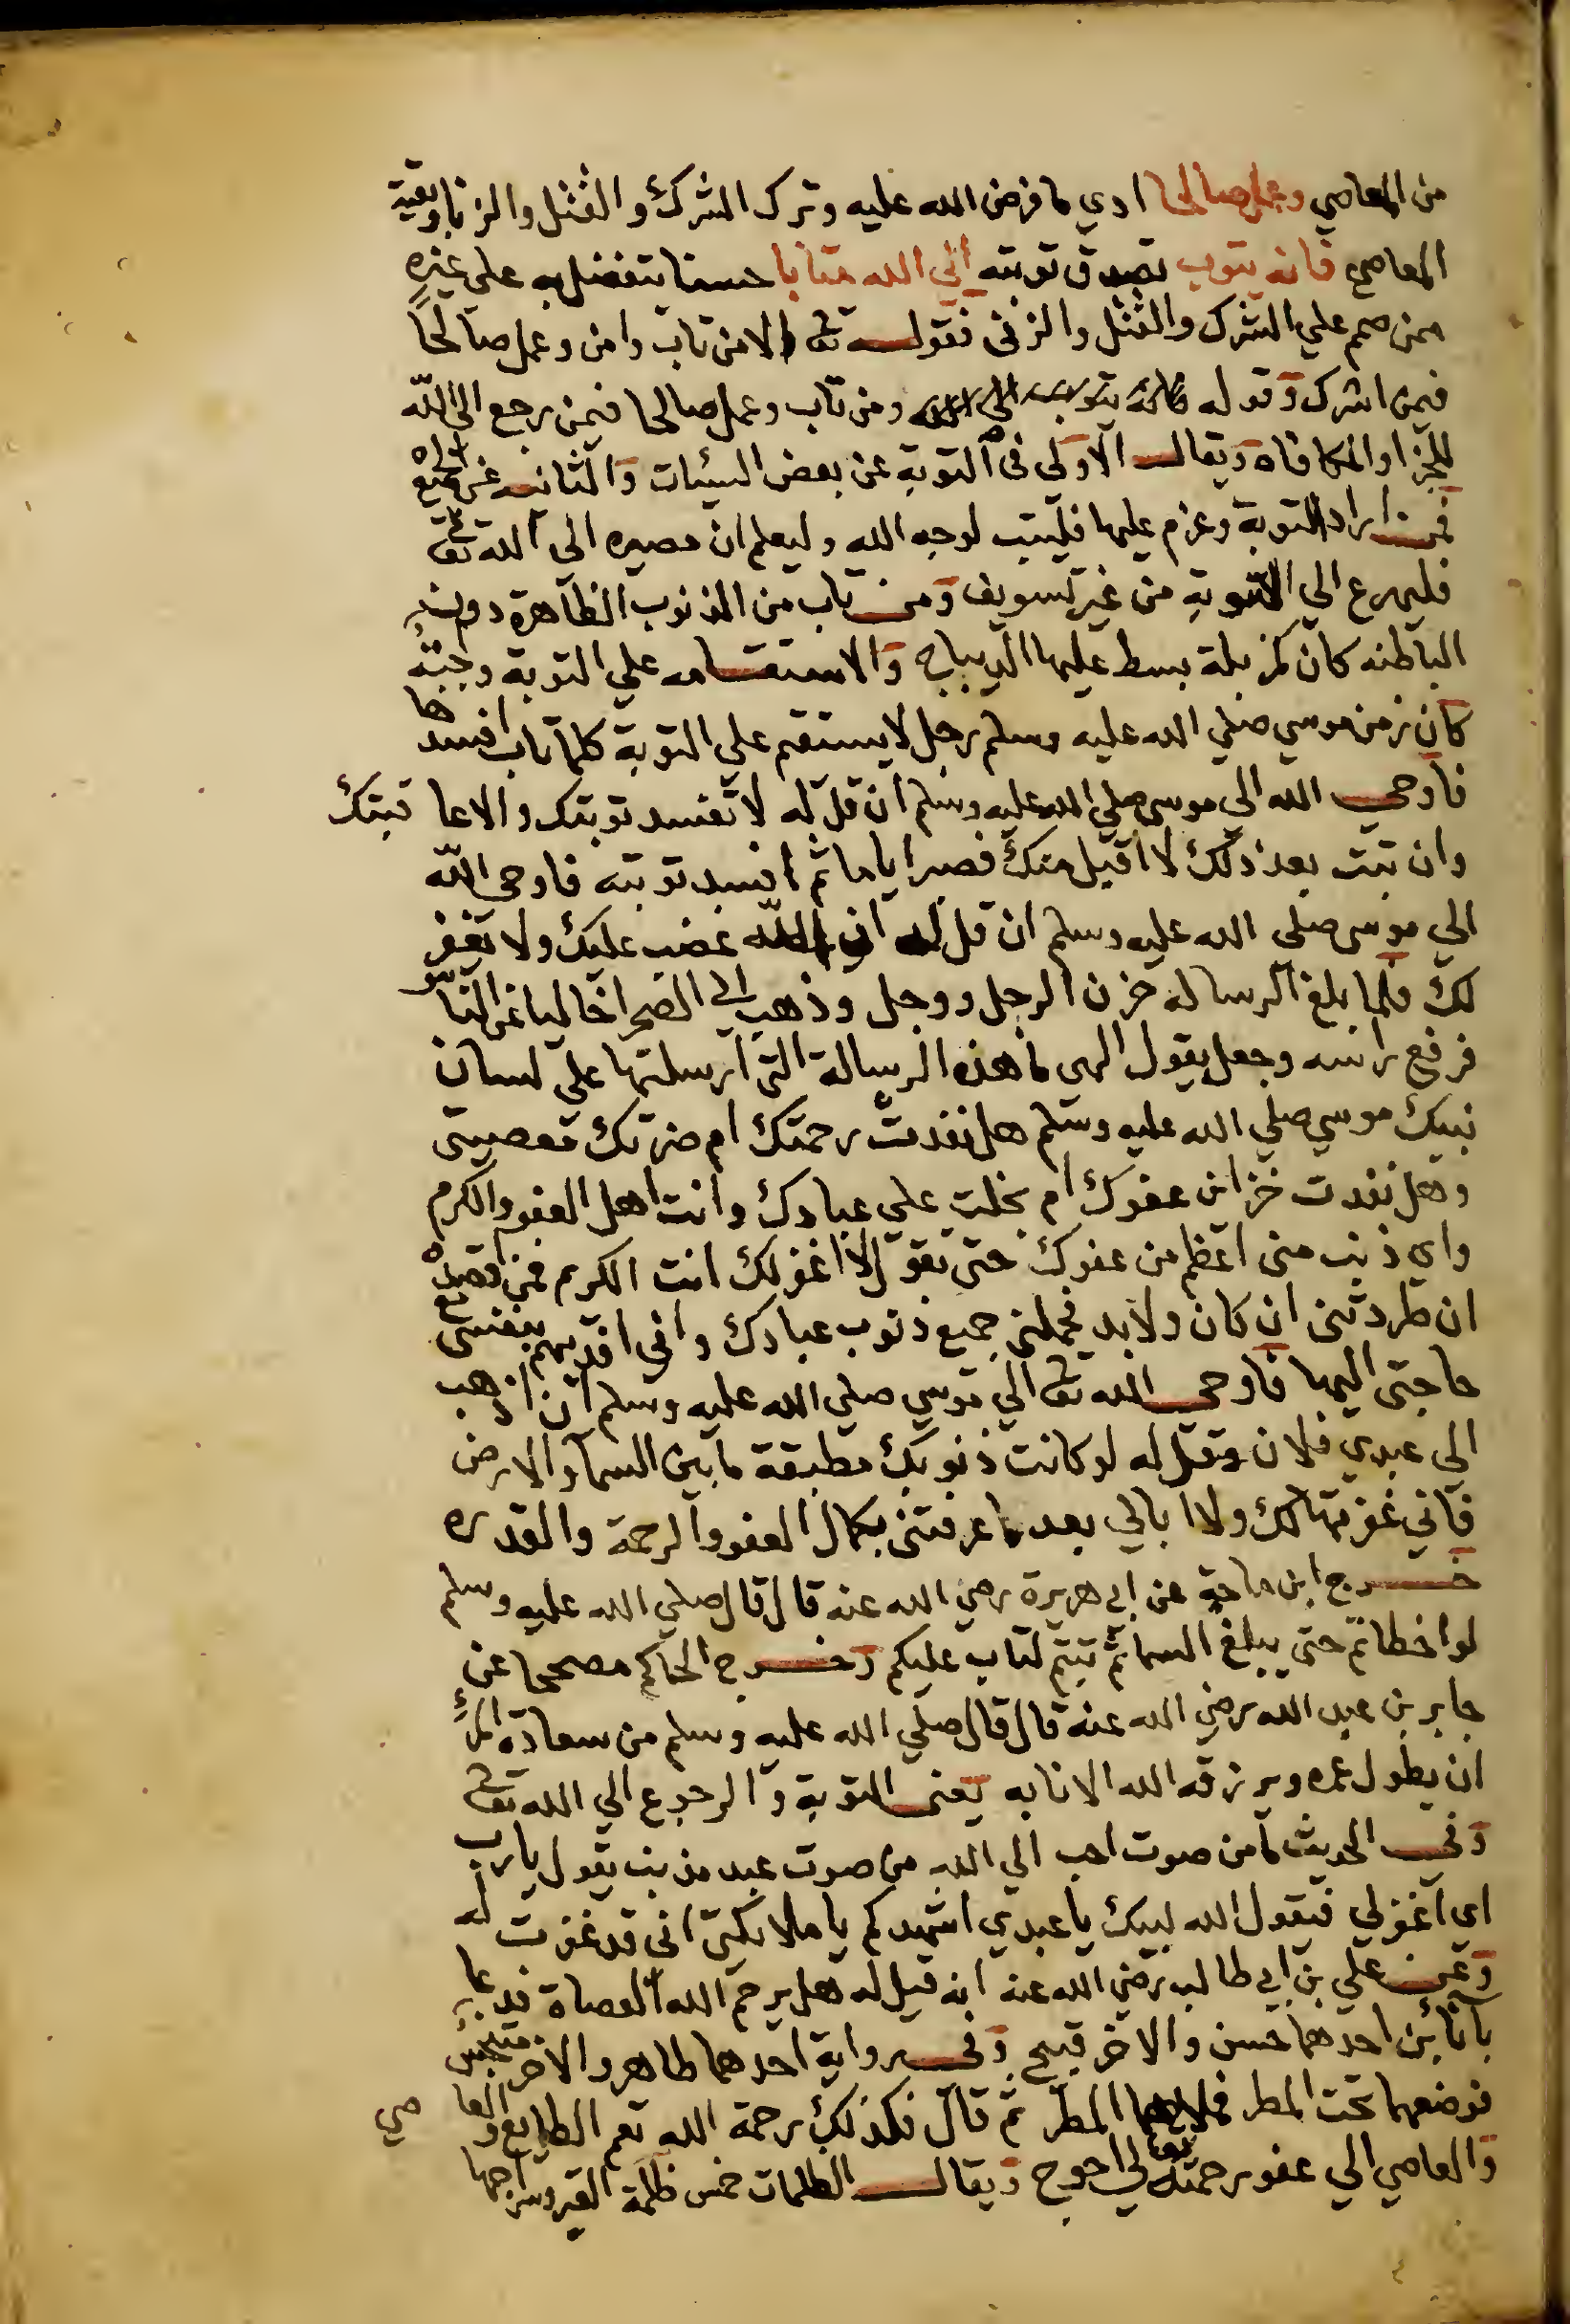 من المعاصي وعمل صالحا ادي ما فرض الله عليه وترك الشرك والقتل والزنا وبقية
المعاصي فانه يتوب تصدق توبته الي الله متابا حسنا يتفضل به علي غيره
ممن صمم علي الشرك والقتل والزني فقوله تع الا من تاب وامن وعمل صالحاً
فيمن اشرك وقوله ومن تاب وعمل صالحا فيمن رجع الي الله
للجزا والمكافاه ويقال الاولي في التوبة عن بعض السيئات والثانيه عن جميع
فمن اراد التوبة وعزم عليها فليتب لوجه الله وليعلم ان مصيره الي الله تع
فليهرع الي التوبة من غير تسويف ومن تاب من الذنوب الظاهرة دون
الباطنه كان كمزبلة بسط عليها الديباج والاستقامه علي التوبة وجبته
كان زمن موسي صلي الله عليه وسلم رجل لا يستقم علي التوبة كلما تاب افسدها
فاوحي الله الي موسي صلي الله عليه وسلم ان قل له لا تفسد توبتك والا عاقبتك
وان تبت بعد ذلك لا اقبل منك فصبر اياما ثم افسد توبته فاوحي الله
الي موسي صلي الله عليه وسلم ان قل له ان الله غضب عليك ولا يغفر
لك فلما بلغ الرساله حزن الرجل ووجل وذهب الي الصحرا خاليا عن الناس
فرفع راسه وجعل يقول الهي ما هذه الرسالة التي ارسلتها علي لسان
نبيك موسي صلي الله عليه وسلم هل نفدت رحمتك ام ضرتك معصيتي
وهل نفدت خزاين عفوك ام بخلت علي عبادك وانت اهل العفو والكرم
واي ذنب مني اعظم من عفوك حتي تقول لا اغفر لك انت الكريم فمن اقصده
ان طردتني ان كان ولابد فحملني جميع ذنوب عبادك واني افديهم بنفسي مع
حاجتي اليها فاوحي الله تع الي موسي صلي الله عليه وسلم ان اذهب
الي عبدي فلان وقل له لو كانت ذنوبك مطبقة ما بين السما والارض
فاني غفرتها لك ولا ابالي بعد ما عرفتني بكمال العفو والرحمة والقدره
خرج ابن ماجة عن ابي هريرة رضي الله عنه قال قال صلي الله عليه وسلم
لو اخطاتم حتي يبلغ السما ثم تبتم لتاب عليكم وخرج الحاكم مصححا عن
جابر بن عبد الله رضي الله عنه قال قال صلي الله عليه وسلم من سعادة المرء
ان يطول عمره ويرزقه الله الانابه يعني التوبة والرجوع الي الله تع
وفي الحديث ما من صوت احب الي الله من صوت عبد مذنب يقول يا رب
اي اغفر لي فيقول الله لبيك يا عبدي اشهدكم يا ملايكتي اني قد غفرت له
وعن علي بن ابي طالب رضي الله عنه انه قيل له هل يرحم الله العصاة فدعا
بآنائين احدهما حسن والاخر قبيح وفي رواية احدهما طاهر والاخر متنجس
فوضعهما تحت المطر فملاهما المطر ثم قال فكذلك رحمة الله تعم الطايع والعاصي
والعاصي الي عفو رحمته تعالي احوج ويقال الظلمات خمس ظلمة القبر وسراجها